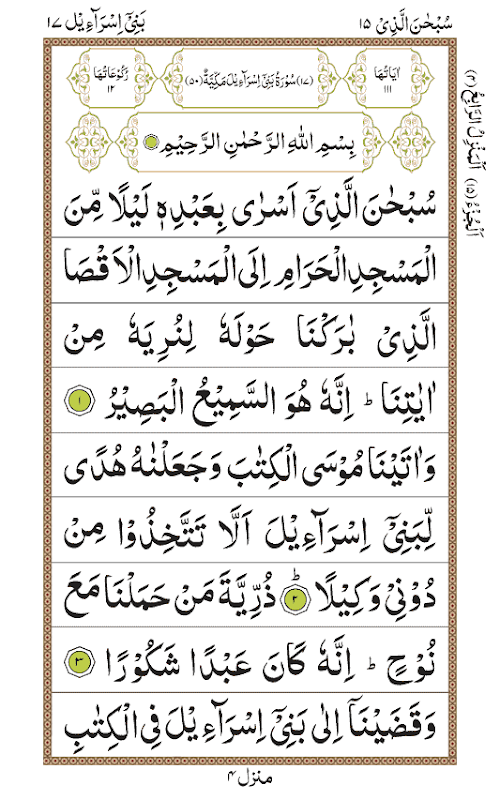 سُبْحٰنَ الَّذِیْۤ ۱۵
بَنِیْۤ اِسْرَآءِیْل ۱۷
اٰیَاتُهَا ۱۱۱
(۱۷) سُوْرَةُ بَنِیْۤ اِسْرَآءِیْلَ مَكِّیَّةٌ (۵۰)
رُكُوْعَاتُهَا ۱۲
بِسْمِ اللّٰهِ الرَّحْمٰنِ الرَّحِیْمِ
سُبْحٰنَ الَّذِیْۤ اَسْرٰی بِعَبْدِهٖ لَیْلًا مِّنَ
الْمَسْجِدِ الْحَرَامِ اِلَی الْمَسْجِدِ الْاَقْصَا
الَّذِیْ بٰرَكْنَا حَوْلَهٗ لِنُرِیَهٗ مِنْ
اٰیٰتِنَا ؕ اِنَّهٗ هُوَ السَّمِیْعُ الْبَصِیْرُ ۱
وَاٰتَیْنَا مُوْسَی الْكِتٰبَ وَجَعَلْنٰهُ هُدًی
لِّبَنِیْۤ اِسْرَآءِیْلَ اَلَّا تَتَّخِذُوْا مِنْ
دُوْنِیْ وَكِیْلًا ؕ ۲ ذُرِّیَّةَ مَنْ حَمَلْنَا مَعَ
نُوْحٍ ؕ اِنَّهٗ كَانَ عَبْدًا شَكُوْرًا ۳
وَقَضَیْنَاۤ اِلٰی بَنِیْۤ اِسْرَآءِیْلَ فِی الْكِتٰبِ
منزل ۴
اَلْمَنْزِلُ الرَّابِعُ (۴)
اَلْجُزْءُ (۱۵)